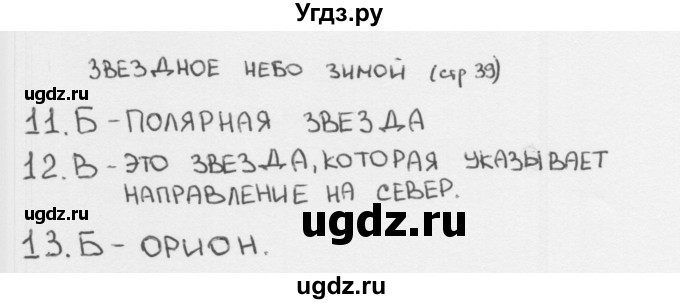 Угдз.ру
ЗВЕЗДНОЕ НЕБО ЗИМОЙ (стр 39)
ugdz.ru
11. Б - ПОЛЯРНАЯ ЗВЕЗДА
12. В - ЭТО ЗВЕЗДА, КОТОРАЯ УКАЗЫВАЕТ
НАПРАВЛЕНИЕ НА СЕВЕР.
ugdz.ru
ugdz.ru
13. Б - ОРИОН.
ugdz.ru